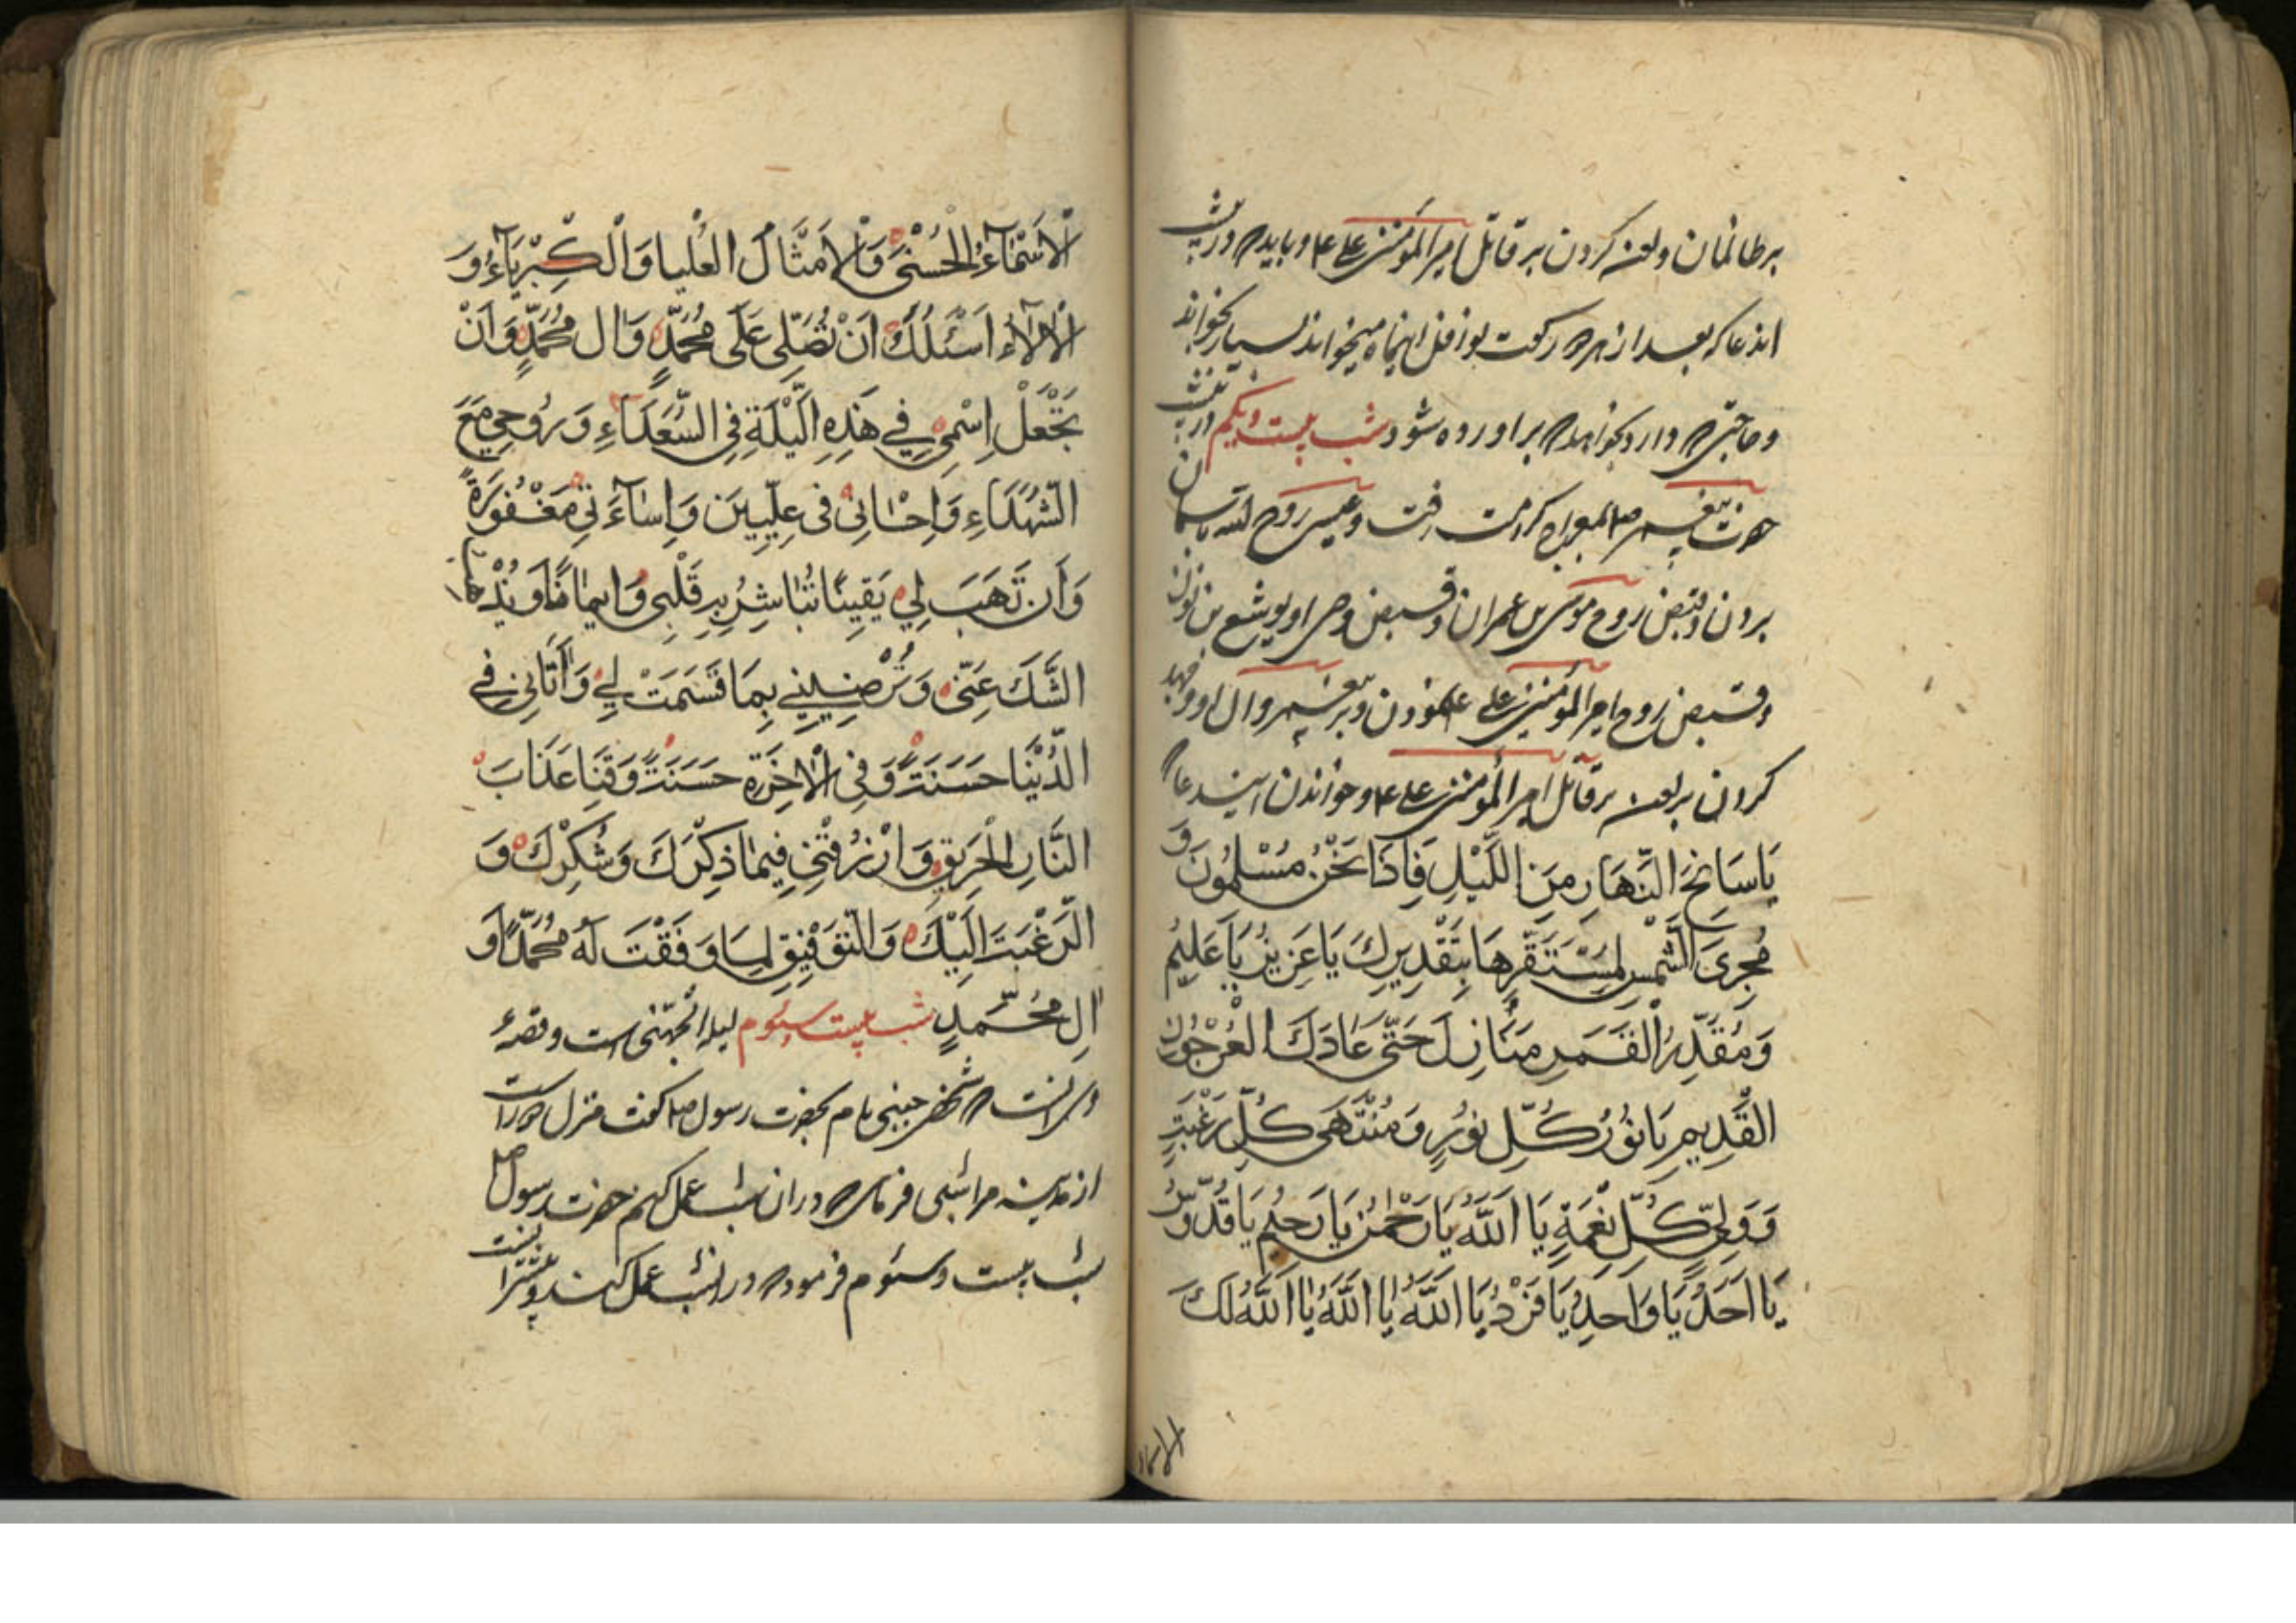 بر ظالمان و لعن کردن بر قاتل امیر المؤمنین علی ع م و باید که درین شب
این دعا که بعد از هر دو رکعت نوافل اینماه میخوانند بسیار بخوانند
و حاجتی که دارد بخواهد که براورده شود شب بیست ویکم درین شب
حضرت پیغمبر صلم بمعراج کرامت رفت و عیسی روح الله باسمان
بردن و قبض روح موسی بن عمران و قبض وصی او یوشع بن نون
و قبض روح امیر المؤمنین علی ع نمودن و بر پیغمبر و ال او
کردن بر لعن بر قاتل امیر المؤمنین علی ع م و خواندن ایندعا
يَا سَالِخَ النَّهَارِ مِنَ اللَّيْلِ فَاِذَا نَحْنُ مُسْلِمُونَ وَ
مُجْرِيَ الشَّمْسِ لِمُسْتَقَرِّهَا بِتَقْدِيرِكَ يَا عَزِيزُ يَا عَلِيمُ
وَ مُقَدِّرَ الْقَمَرِ مَنَازِلَ حَتَّى عَادَ كَالْعُرْجُونِ
الْقَدِيمِ يَا نُورَ كُلِّ نُورٍ وَ مُنْتَهَى كُلِّ رَغْبَةٍ
وَ وَلِيَّ كُلِّ نِعْمَةٍ يَا اَللَّهُ يَا رَحْمٰنُ يَا رَحِيمُ يَا قُدُّوسُ
يَا اَحَدُ يَا وَاحِدُ يَا فَرْدُ يَا اَللَّهُ يَا اَللَّهُ يَا اَللَّهُ لَكَ
الاسماء
الْاَسْمَآءُ الْحُسْنَى وَ الْاَمْثَالُ الْعُلْيَا وَ الْكِبْرِيَآءُ وَ
الْاٰلَآءُ اَسْئَلُكَ اَنْ تُصَلِّيَ عَلَى مُحَمَّدٍ وَ اٰلِ مُحَمَّدٍ وَ اَنْ
تَجْعَلْ اِسْمِي فِي هَذِهِ اللَّيْلَةِ فِي السُّعَدَاءِ وَ رُوحِي مَعَ
الشُّهَدَاءِ وَ اِحْسَانِي فِي عِلِّيِّينَ وَ اِسَآءَتِي مَغْفُورَةً
وَ اَنْ تَهَبَ لِي يَقِينًا تُبَاشِرُ بِهِ قَلْبِي وَ اِيمَانًا يُذْهِبُ
الشَّكَ عَنِّي وَ تُرْضِيَنِي بِمَا قَسَمْتَ لِي وَ اٰتَانِي فِي
الدُّنْيَا حَسَنَةً وَ فِي الْاٰخِرَةِ حَسَنَةً وَ قِنَا عَذَابَ
النَّارِ الْحَرِيقِ وَ ارْزُقْنِي فِيمَا ذِكْرَكَ وَ شُكْرَكَ وَ
الرَّغْبَتَ اِلَيْكَ وَ التَّوْفِيقِ لِمَا وَفَّقْتَ لَهُ مُحَمَّدًا وَ
اٰلِ مُحَمَّدٍ شب بیست سئوم لیلة الجهنی است و قصهٔ
انست که شخص جهنی نام بحضرت رسول صلم گفت منزل
از مدینه مرا شبی فرمای که در ان شب عمل کنم حضرت رسول صلم
شب بیست و سئوم فرمود که در انشب عمل کند و